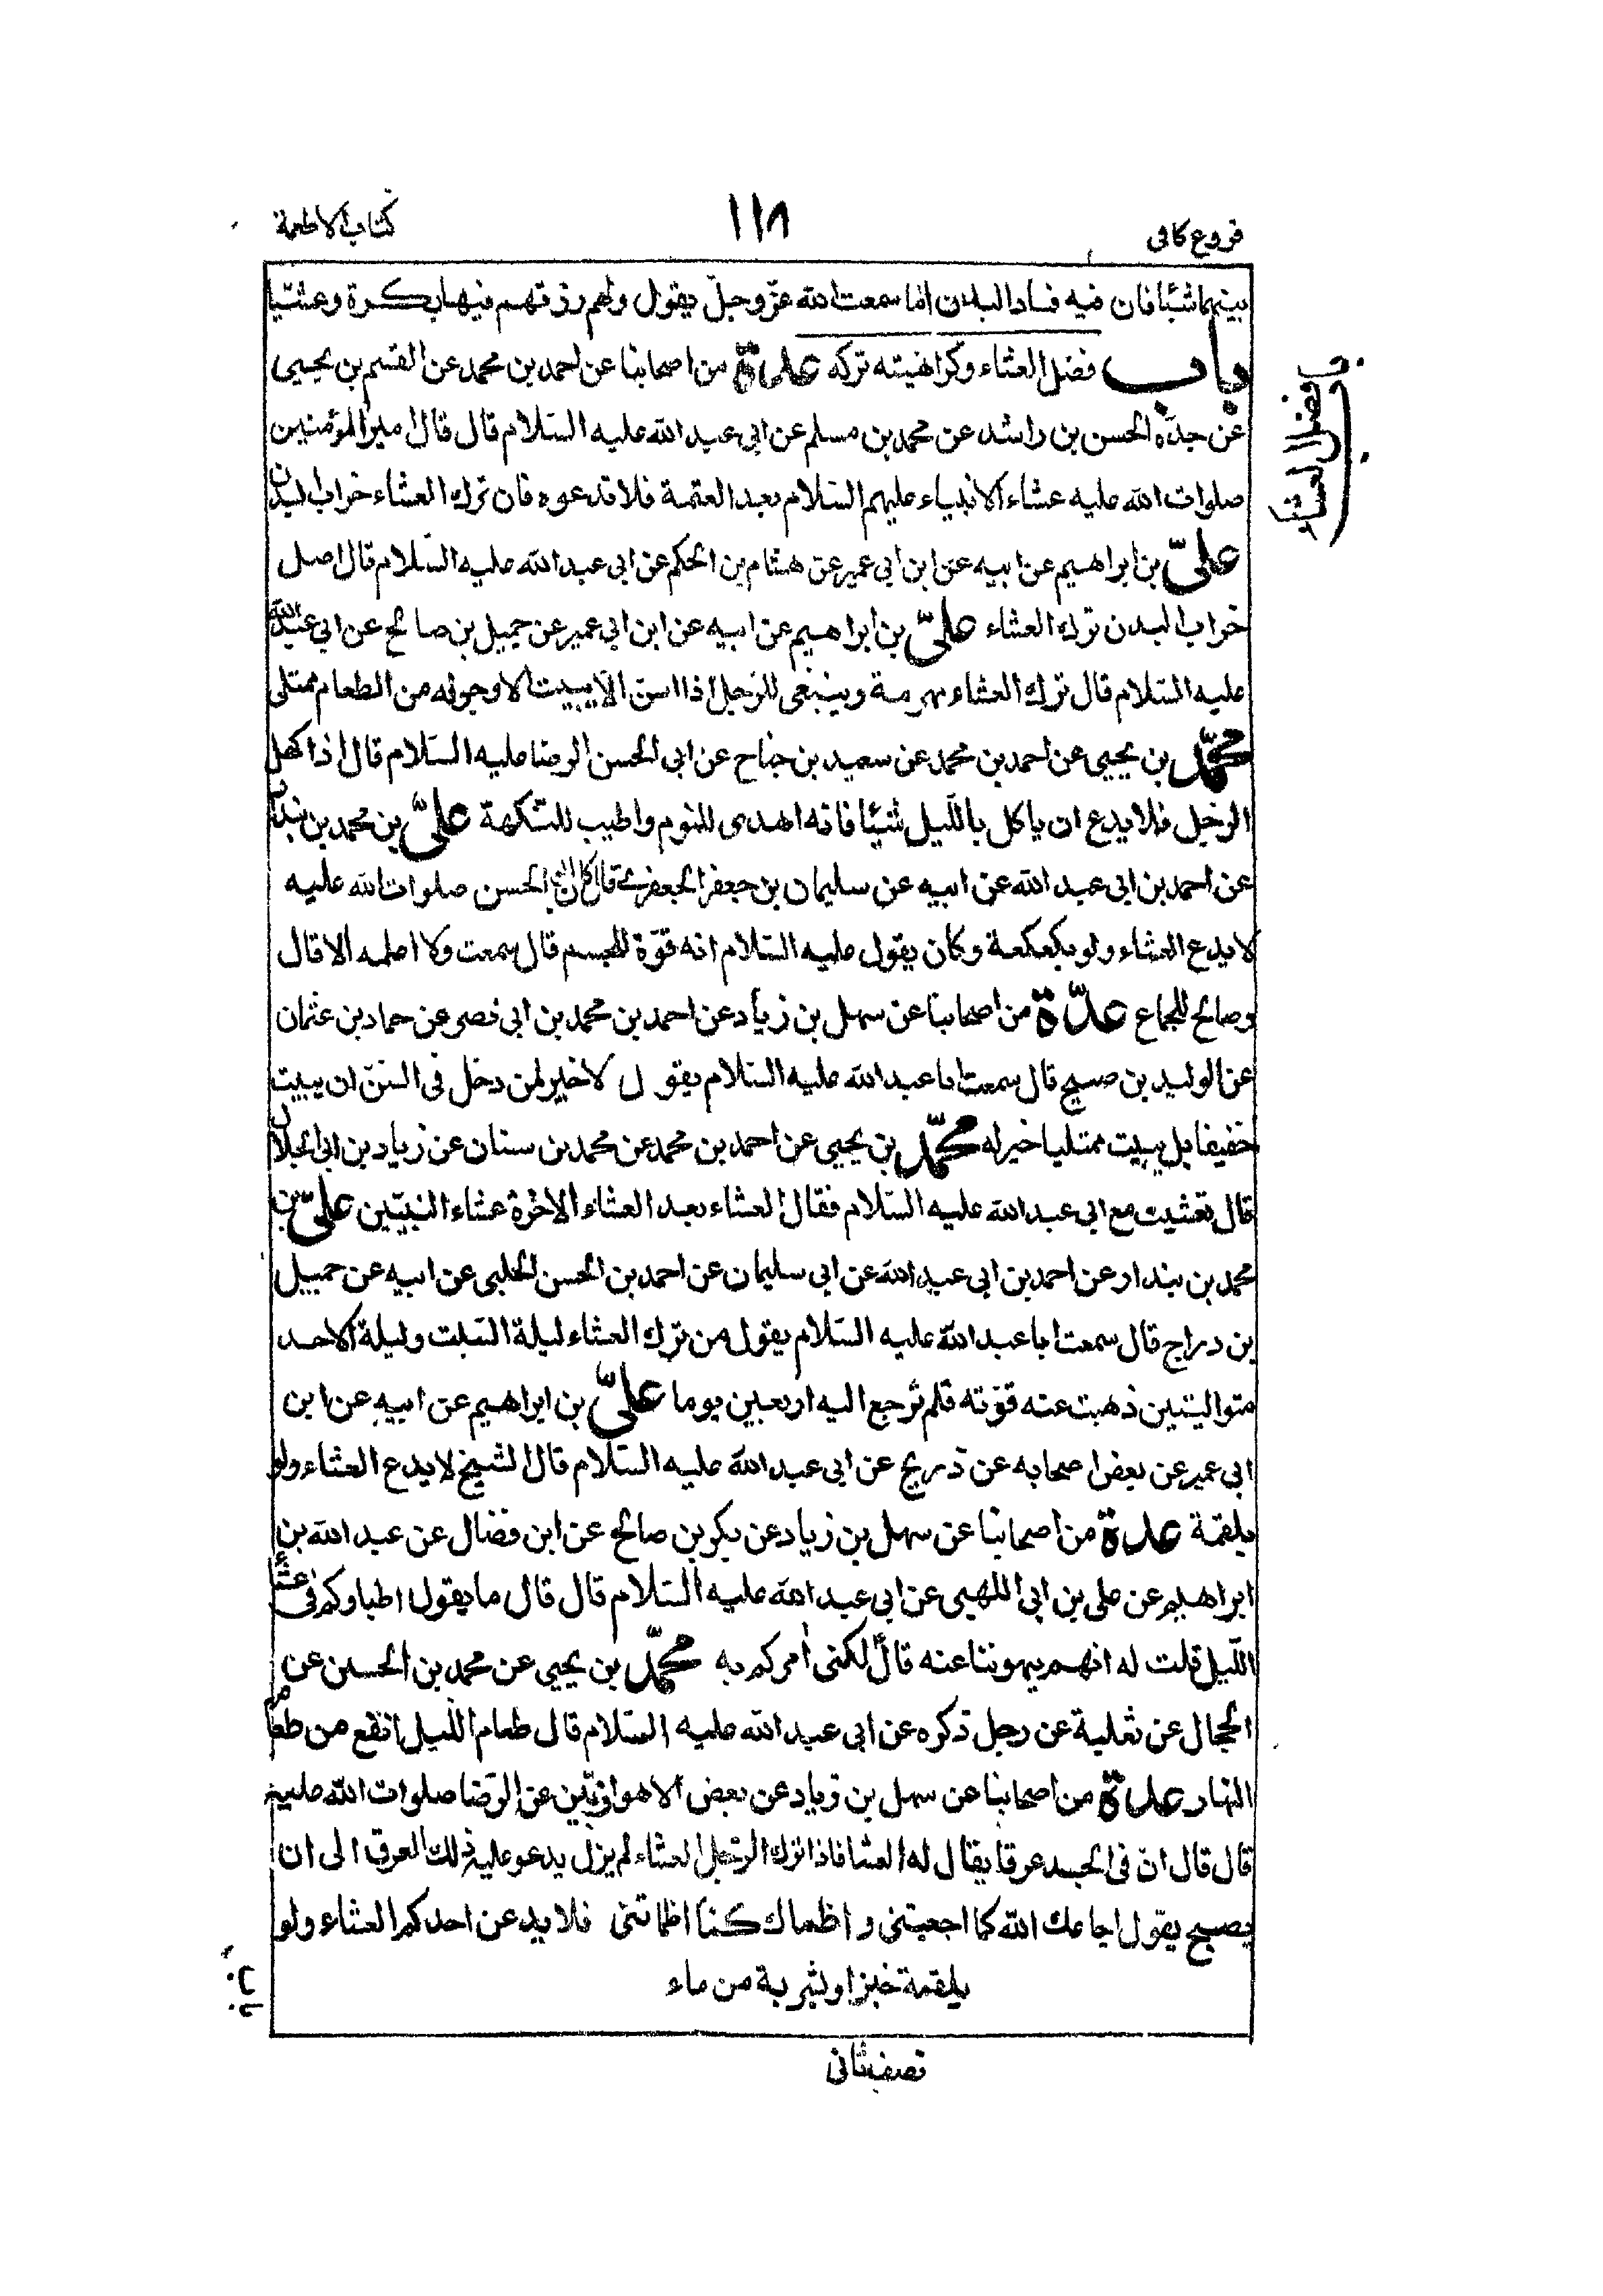 فروع كافى
١١٨
كتاب الاطعمة
بينهما شيئا فان فيه فساد البدن اما سمعت الله عزّ وجلّ يقول ولهم رزقهم فيها بكرة وعشيّا
باب فضل العشاء وكراهيته تركه عدة من اصحابنا عن احمد بن محمد عن القسم بن يحيى
عن جدّه الحسن بن راشد عن محمد بن مسلم عن ابى عبد الله عليه السّلام قال قال امير المؤمنين
صلوات الله عليه عشاء الانبياء عليهم السّلام بعد العتمة فلا تدعوه فان ترك العشاء خراب البدن
علىّ بن ابراهيم عن ابيه عن ابن ابى عمير عن هشام بن الحكم عن ابى عبد الله عليه السّلام قال اصل
خراب البدن ترك العشاء علىّ بن ابراهيم عن ابيه عن ابن ابى عمير عن جميل بن صالح عن ابى عبد الله
عليه السّلام قال ترك العشاء مهرمة وينبغى للرّجل اذا اسنّ الّا يبيت الا وجوفه من الطعام ممتلى
محمّد بن يحيى عن احمد بن محمد عن سعيد بن جناح عن ابى الحسن الرضا عليه السّلام قال اذا اكتهل
الرجل فلا يدع ان ياكل باللّيل شيئا فانه اهدى للنوم واطيب للنكهة علىّ بن محمد بن بندار
عن احمد بن ابى عبد الله عن ابيه عن سليمان بن جعفر الجعفرى قال كان ابو الحسن صلوات الله عليه
لا يدع العشاء ولو بكعكعة وكان يقول عليه السّلام انه قوّة للجسم قال سمعت ولا اعلمه الا قال
وصالح للجماع عدّة من اصحابنا عن سهل بن زياد عن احمد بن محمد بن ابى نصر عن حماد بن عثمان
عن الوليد بن صبيح قال سمعت ابا عبد الله عليه السّلام يقول لا خير لمن دخل فى السنّ ان يبيت
خفيفا بل يبيت ممتليا خير له محمّد بن يحيى عن احمد بن محمد عن محمد بن سنان عن زياد بن ابى الحلال
قال تعشيت مع ابى عبد الله عليه السّلام فقال العشاء بعد العشاء الاخرة عشاء النبيّين علىّ بن
محمد بن بندار عن احمد بن ابى عبد الله عن ابى سليمان عن احمد بن الحسن الحلبى عن ابيه عن جميل
بن دراج قال سمعت ابا عبد الله عليه السّلام يقول من ترك العشاء ليلة السّبت وليلة الاحد
متواليتين ذهبت عنه قوّته فلم ترجع اليه اربعين يوما علىّ بن ابراهيم عن ابيه عن ابن
ابى عمير عن بعض اصحابه عن ذريح عن ابى عبد الله عليه السّلام قال الشيخ لا يدع العشاء ولو
بلقمة عدة من اصحابنا عن سهل بن زياد عن بكر بن صالح عن ابن فضال عن عبد الله بن
ابراهيم عن على بن ابى اللهبى عن ابى عبد الله عليه السّلام قال قال ما يقول اطباوكم فى عشاء
اللّيل قلت له انهم ينهوننا عنه قال لكنى امركم به محمّد بن يحيى عن محمد بن الحسين عن
الحجال عن ثعلبة عن رجل ذكره عن ابى عبد الله عليه السّلام قال طعام اللّيل انفع من طعام
النهار عدة من اصحابنا عن سهل بن زياد عن بعض الاهوازيّين عن الرّضا صلوات الله عليه
قال قال انّ فى الجسد عرقا يقال له العشا فاذا ترك الرّجل العشاء لم يزل يدعو عليه ذلك العرق الى ان
يصبح يقول اجاعك الله كما اجعتنى و اظماك كما اظماتنى فلا يدعن احدكم العشاء ولو
بلقمة خبز او شربة من ماء
باب فضل العشاء
نصف ثانى